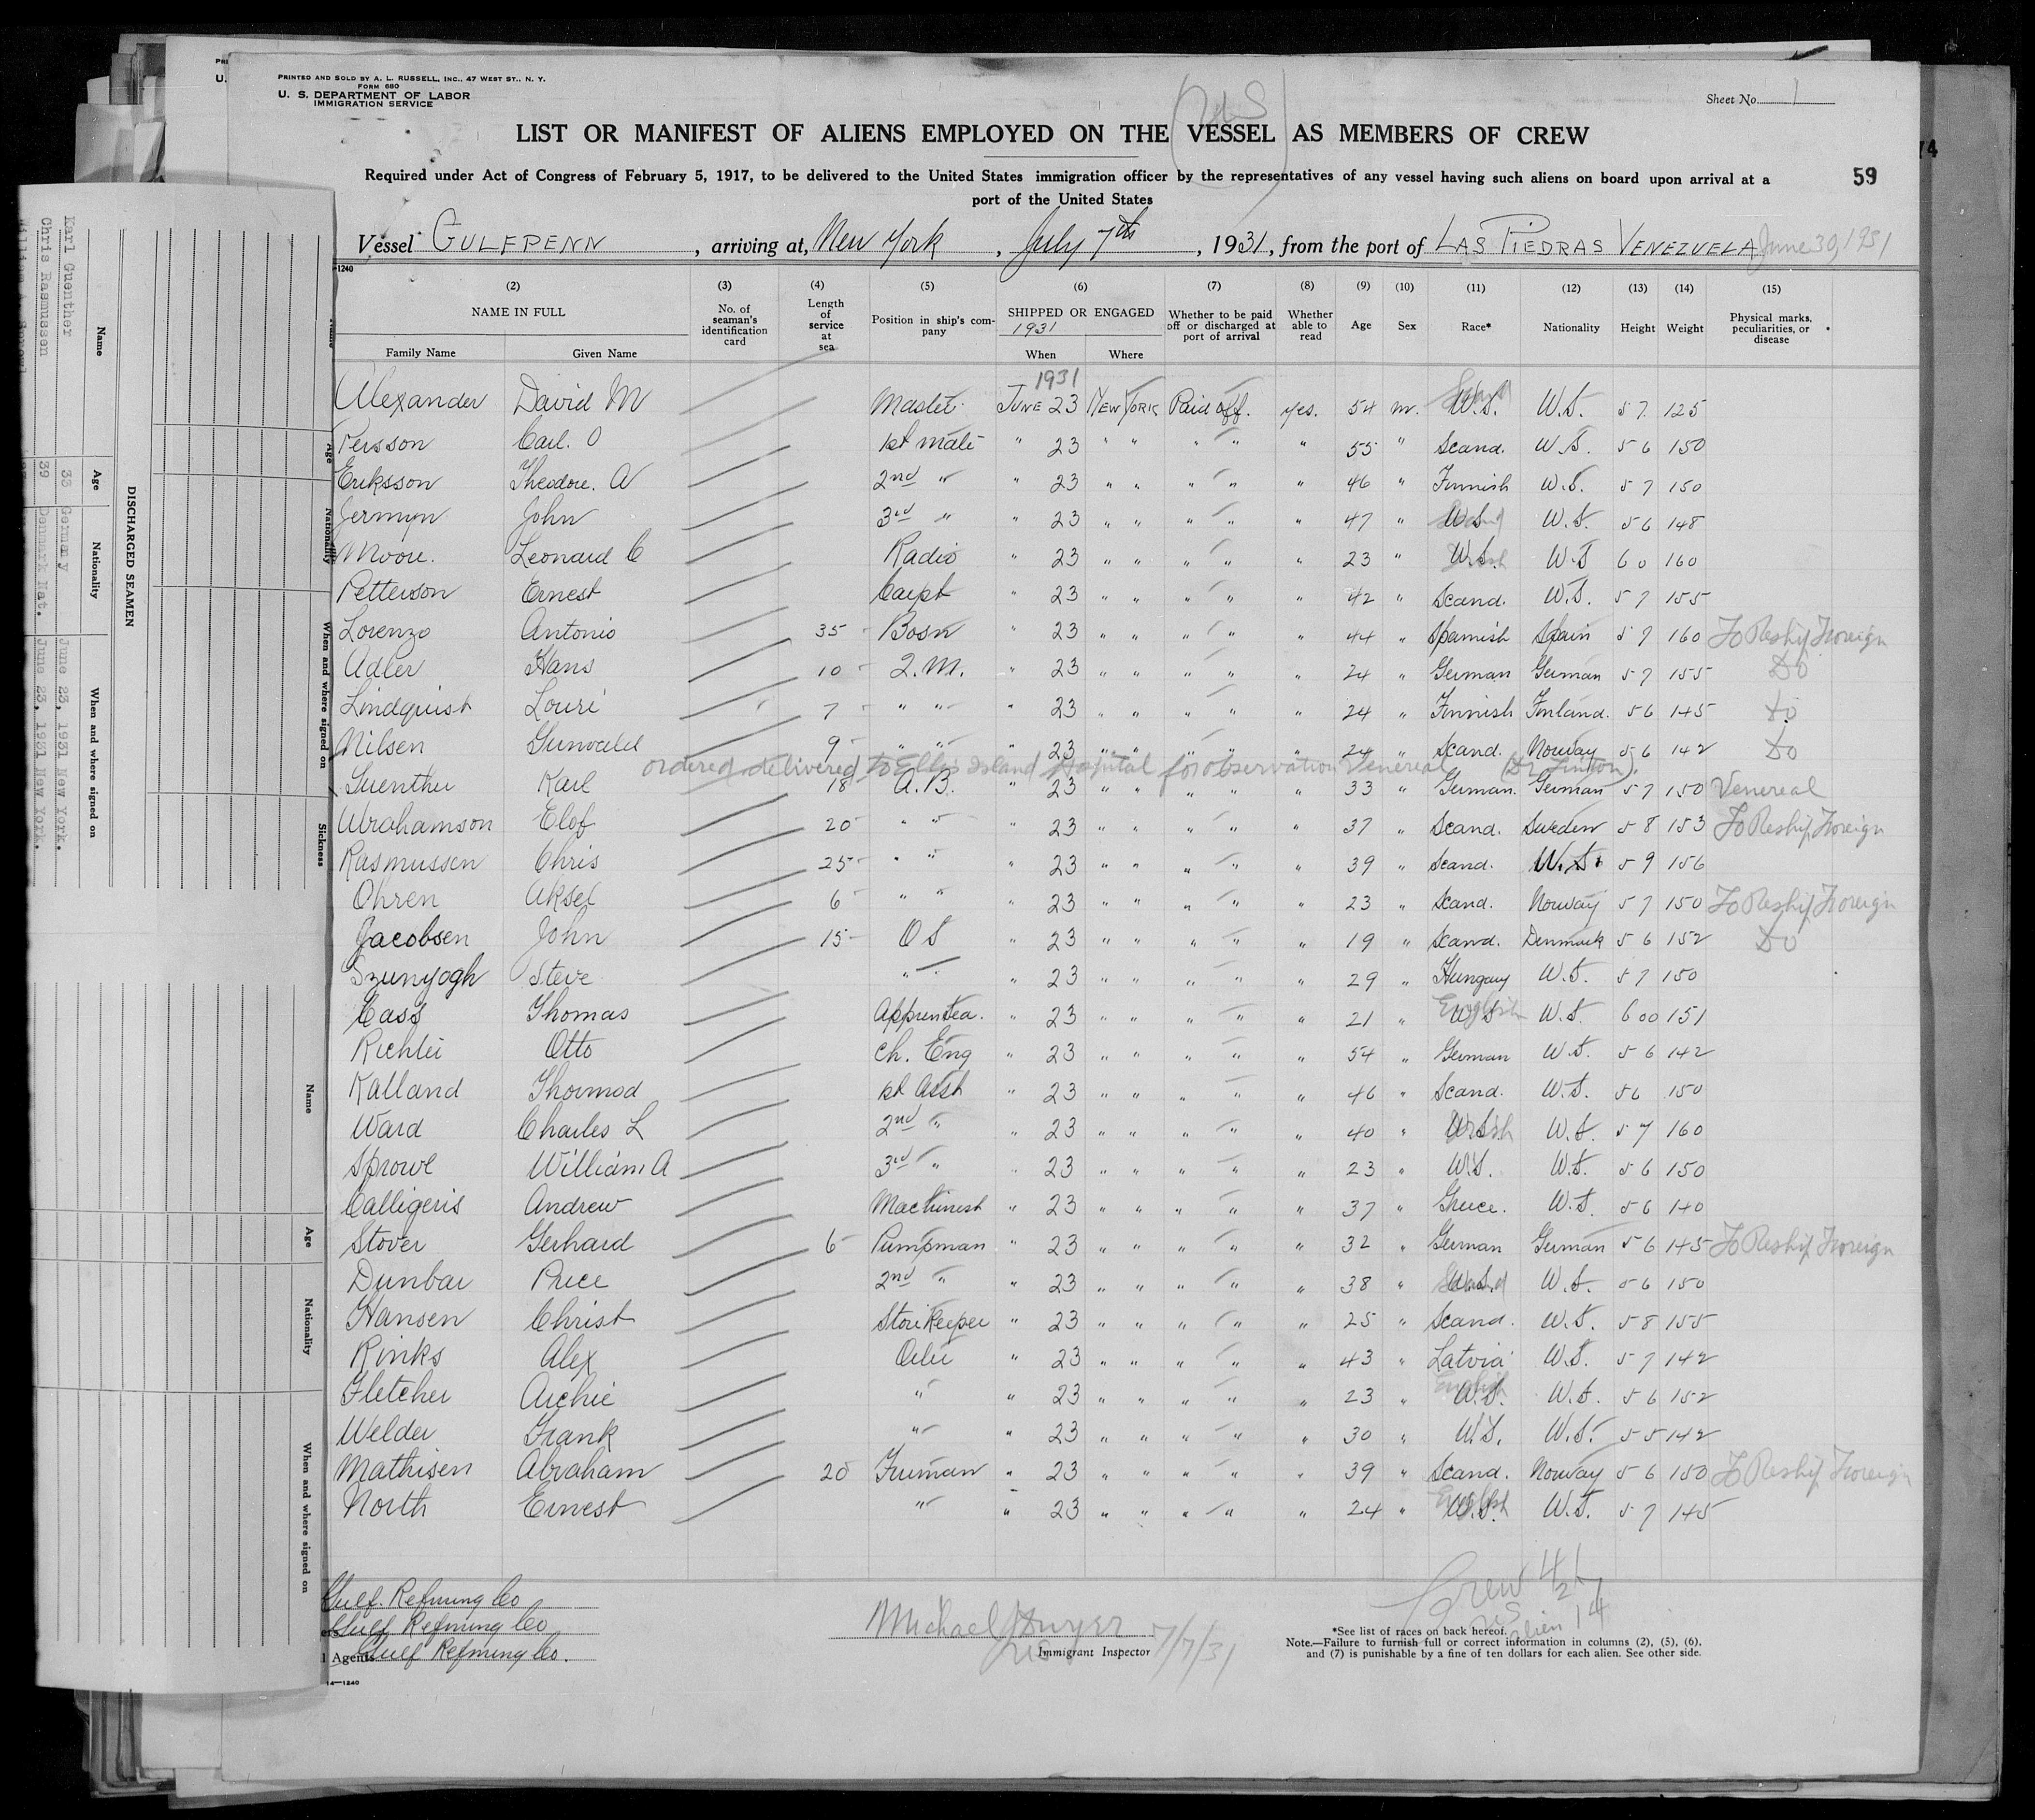 PRINTED AND SOLD BY A. L. RUSSELL, INC., 47 WEST ST., N. Y.
FORM 680
U. S. DEPARTMENT OF LABOR
IMMIGRATION SERVICE
Sheet No. 1
LIST OR MANIFEST OF ALIENS EMPLOYED ON THE VESSEL AS MEMBERS OF CREW
Required under Act of Congress of February 5, 1917, to be delivered to the United States immigration officer by the representatives of any vessel having such aliens on board upon arrival at a
port of the United States
59
Vessel GULFPENN, arriving at, New York, July 7th, 1931, from the port of LAS PIEDRAS VENEZUELA June 30, 1931
(2) (3) (4) (5) (6) (7) (8) (9) (10) (11) (12) (13) (14) (15)
NAME IN FULL No. of seaman's identification card Length of service at sea Position in ship's company SHIPPED OR ENGAGED 1931 Whether to be paid off or discharged at port of arrival Whether able to read Age Sex Race* Nationality Height Weight Physical marks, peculiarities, or disease
Family Name Given Name When Where
1931
Alexander David M Master June 23 New York Paid off. yes. 54 m. U.S. U.S. 5 7 125
Persson Carl. O 1st mate " 23 " " " " " 55 " Scand. U.S. 5 6 150
Eriksson Theodore. A 2nd " " 23 " " " " " 46 " Finnish U.S. 5 7 150
Jermyn John 3rd " " 23 " " " " " 47 " U.S. U.S. 5 6 148
Moore. Leonard C Radio " 23 " " " " " 23 " U.S. U.S 6 0 160
Petterson Ernest Carpt " 23 " " " " " 42 " Scand. U.S. 5 7 155
Lorenzo Antonio 35 Bosn " 23 " " " " " 44 " Spanish Spain 5 7 160 To Reship Foreign
Adler Hans 10 Q.M. " 23 " " " " " 24 " German German 5 7 155 Do
Lindquist Louri 7 " " " 23 " " " " " 24 " Finnish Finland. 5 6 145 Do
Nilsen Gunvald 9 " " " 23 " " " " " 24 " Scand. Norway 5 6 142 Do
ordered delivered to Ellis Island Hospital for observation Venereal (Dr Linton)
Guenther Karl 18 A.B. " 23 " " " " " 33 " German. German 5 7 150 Venereal
Abrahamson Elof 20 " " " 23 " " " " " 37 " Scand. Sweden 5 8 153 To Reship Foreign
Rasmussen Chris 25 " " " 23 " " " " " 39 " Scand. U.S. 5 9 156
Ohren Aksel 6 " " " 23 " " " " " 23 " Scand. Norway 5 7 150 To Reship Foreign
Jacobsen John 15 O S " 23 " " " " " 19 " Scand. Denmark 5 6 152 Do
Szunyogh Steve " " 23 " " " " " 29 " Hungary U.S. 5 7 150
Cass Thomas Apprentea. " 23 " " " " " 21 " U.S. English U.S. 6 00 151
Richter Otto Ch. Eng " 23 " " " " " 54 " German U.S. 5 6 142
Kalland Thormod 1st Asst " 23 " " " " " 46 " Scand. U.S. 5 6 150
Ward Charles L 2nd " " 23 " " " " " 40 " U.S. U.S. 5 7 160
Sprowe William A 3rd " " 23 " " " " " 23 " U.S. U.S. 5 6 150
Calligeris Andrew Machinest " 23 " " " " " 37 " Greece. U.S. 5 6 140
Stover Gerhard 6 Pumpman " 23 " " " " " 32 " German German 5 6 145 To Reship Foreign
Dunbar Price 2nd " " 23 " " " " " 38 " U.S. U.S. 5 6 150
Hansen Christ StoreKeeper " 23 " " " " " 25 " Scand. U.S. 5 8 155
Rinks Alex Oiler " 23 " " " " " 43 " Latvia U.S. 5 7 142
Fletcher Archie " " 23 " " " " " 23 " U.S. English U.S. 5 6 152
Welder Frank " " 23 " " " " " 30 " U.S. U.S. 5 5 142
Mathisen Abraham 20 Fireman " 23 " " " " " 39 " Scand. Norway 5 6 150 To Reship Foreign
North Ernest " " 23 " " " " " 24 " U.S. English U.S. 5 7 145
Gulf Refining Co
Gulf Refining Co
Agents Gulf Refining Co.
14—1240
Michael
Immigrant Inspector 7/7/31
Crew 41
US 27
alien 14
*See list of races on back hereof.
Note.—Failure to furnish full or correct information in columns (2), (5), (6),
and (7) is punishable by a fine of ten dollars for each alien. See other side.
DISCHARGED SEAMEN
Name Age Nationality When and where signed on
Karl Guenther 33 Germany June 23, 1931 New York.
Chris Rasmussen 39 Denmark Nat. June 23, 1931 New York.
Age Nationality When and where signed on Sickness
Name Age Nationality When and where signed on